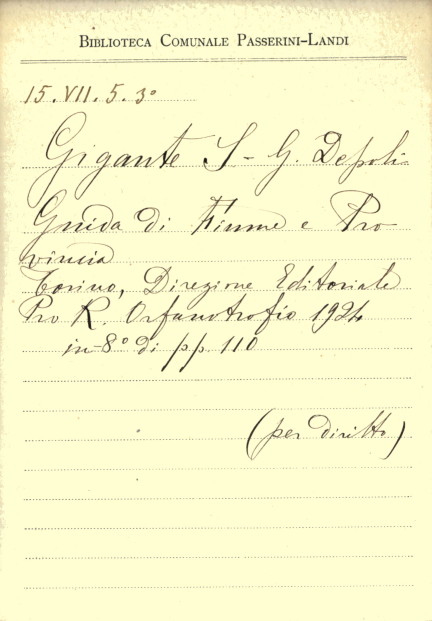 BIBLIOTECA COMUNALE PASSERINI-LANDI
15.VII.5.3°
Gigante S - G. Depoli
Guida di Fiume e Pro
vincia
Torino, Direzione Editoriale
Pro R. Orfanotrofio 1924
in-8° di pp. 110
(per diritto)